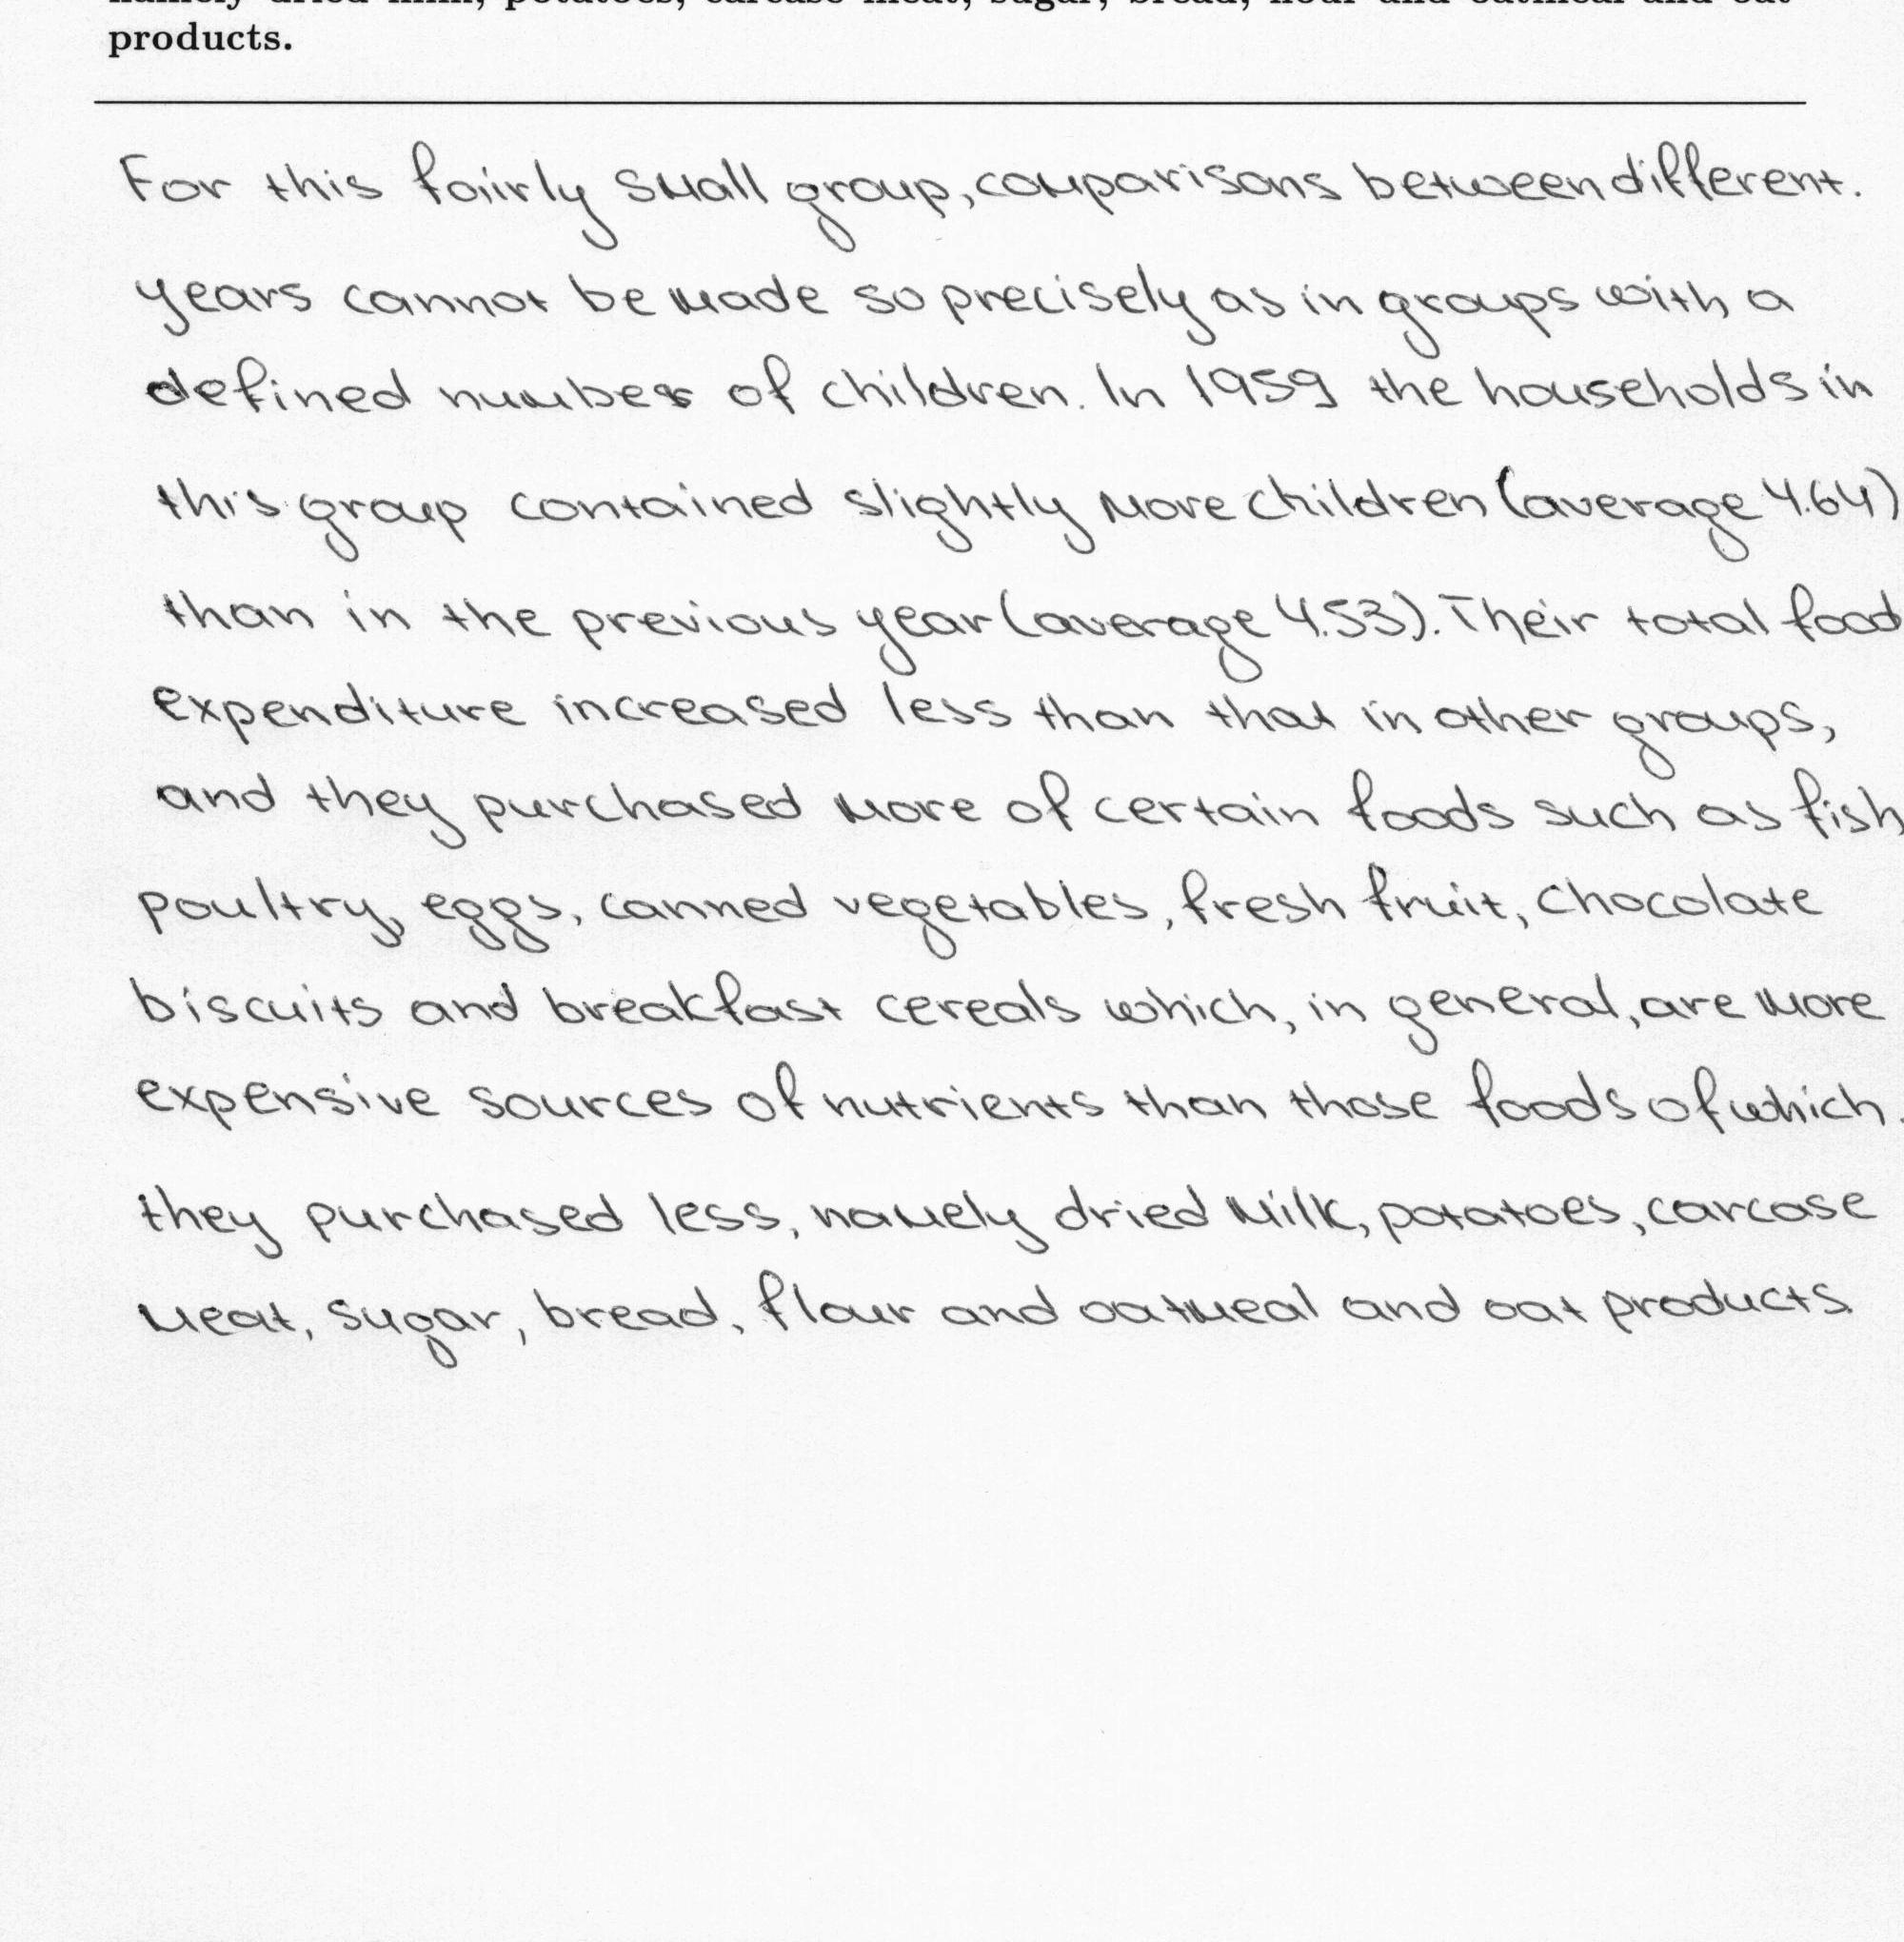 namely dried milk, potatoes, carcase meat, sugar, bread, flour and oatmeal and oat
products.
For this fairly small group, comparisons between different.
years cannot be made so precisely as in groups with a
defined number of children. In 1959 the households in
this group contained slightly more children (average 4.64)
than in the previous year (average 4.53). Their total food
expenditure increased less than that in other groups,
and they purchased more of certain foods such as fish,
poultry, eggs, canned vegetables, fresh fruit, chocolate
biscuits and breakfast cereals which, in general, are more
expensive sources of nutrients than those foods of which.
they purchased less, namely dried milk, potatoes, carcase
meat, sugar, bread, flour and oatmeal and oat products.